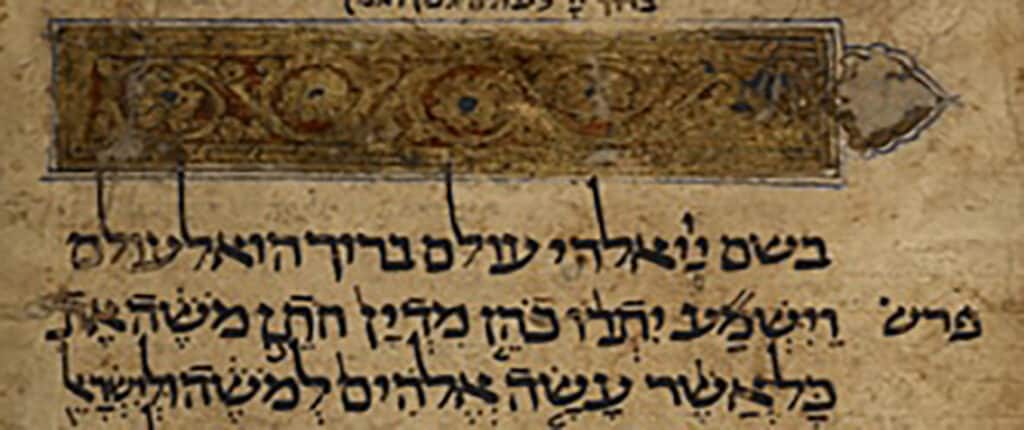 בשם יי אלהי עולם ברוך הוא לעולם
פרש׳ וַיִּשְׁמַע יִתְרוֹ כֹהֵן מִדְיָן חֹתֵן מֹשֶׁה אֵת
כָּל אֲשֶׁר עָשָׂה אֱלֹהִים לְמֹשֶׁה וּלְיִשְׂרָאֵל